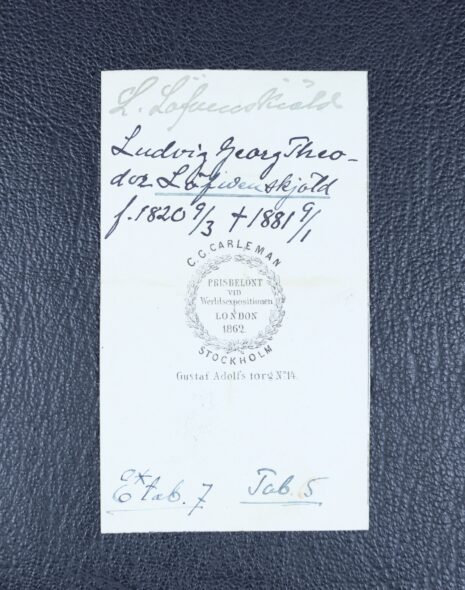 L. Löfvenskiöld
Ludvig Georg Theo-
dor Löfvenskjöld
f. 1820 9/3 † 1881 9/1
C.G. CARLEMAN
PRISBELÖNT
VID
Werldsexpositionen
I
LONDON
1862.
STOCKHOLM
Gustaf Adolfs torg No 14.
E* tab. 7 Tab. 5